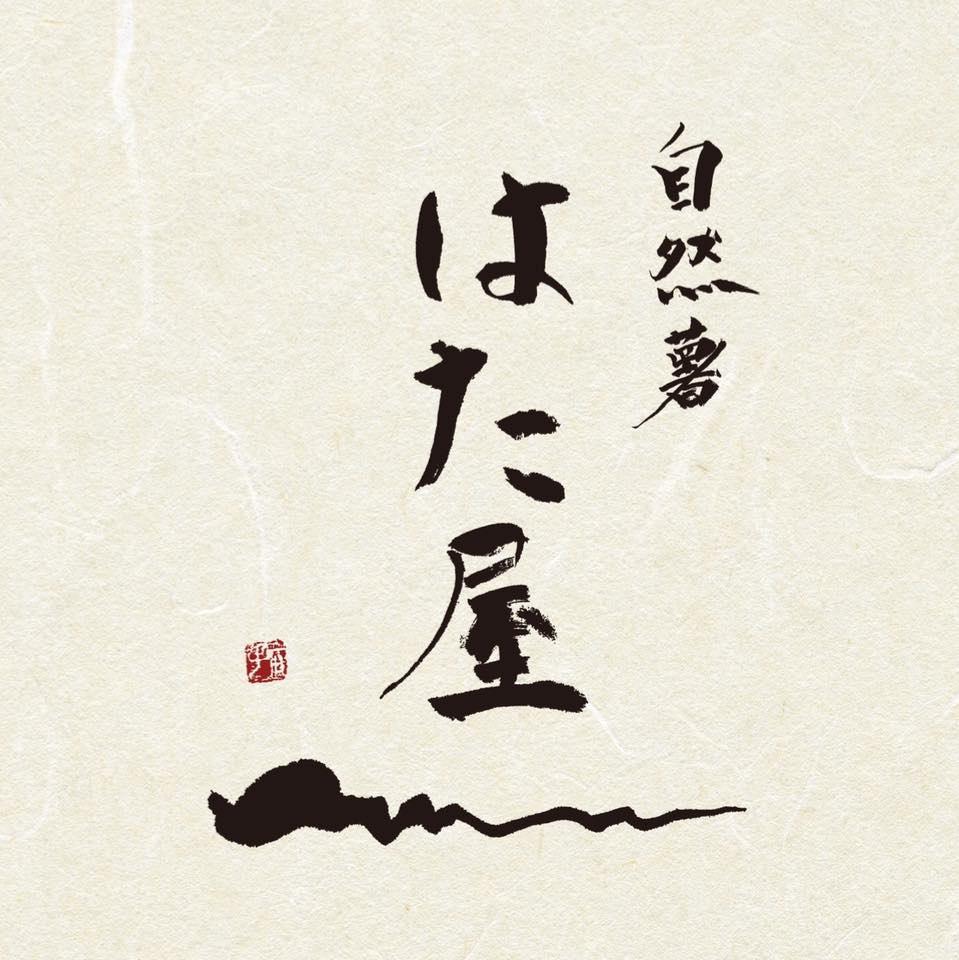 自然薯
はた屋